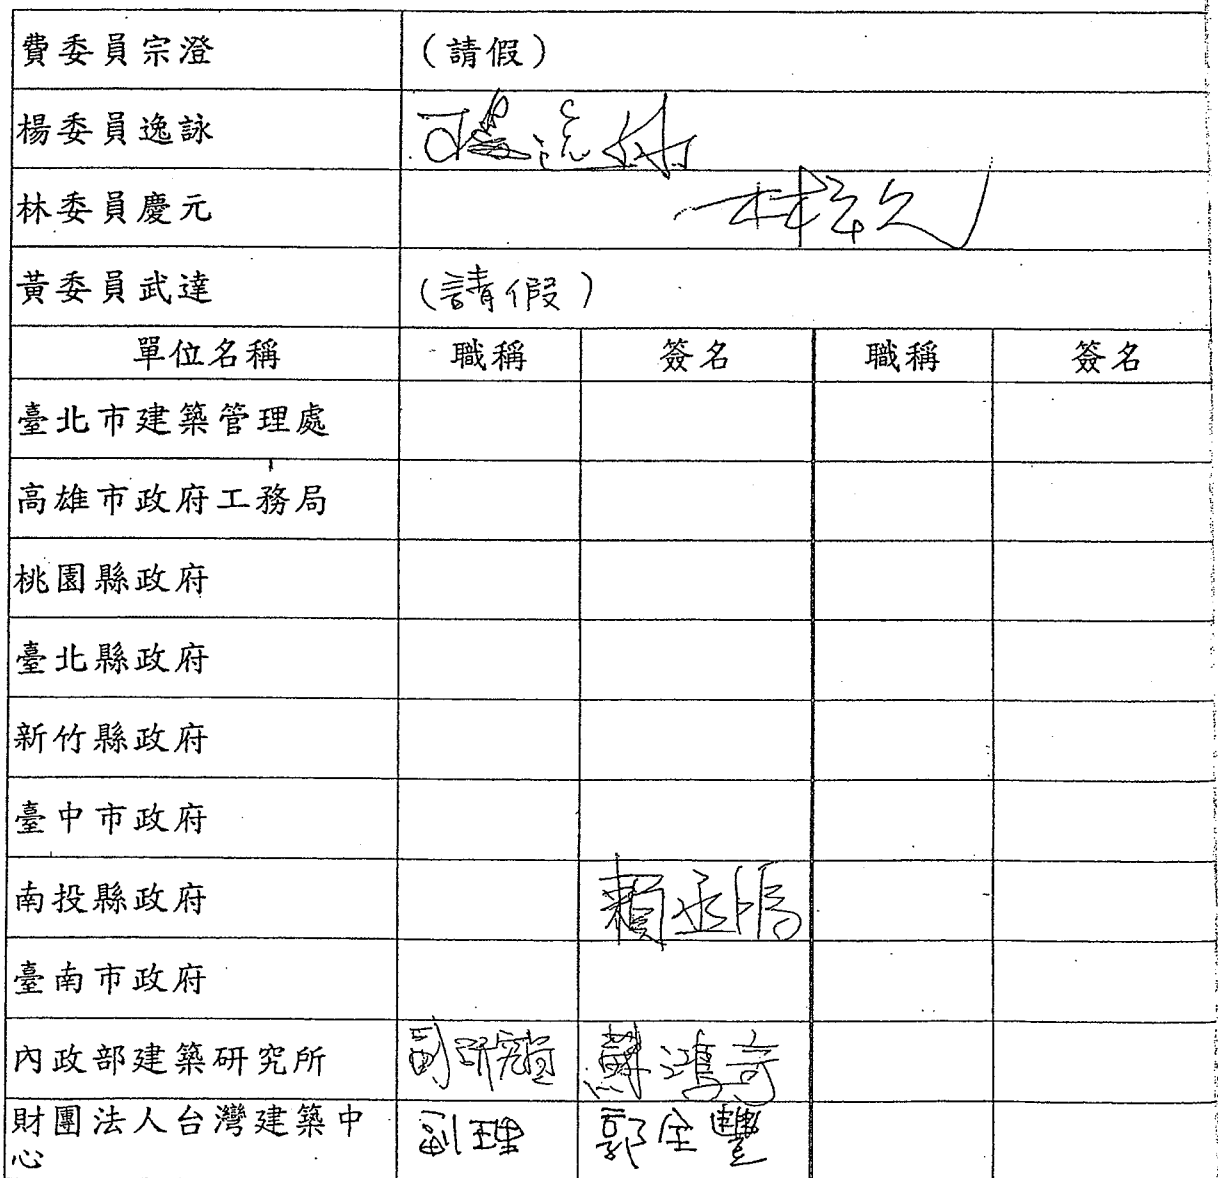 費委員宗澄 (請假)
楊委員逸詠
林委員慶元
黃委員武達 (請假)
單位名稱 職稱 簽名 職稱 簽名
臺北市建築管理處
高雄市政府工務局
桃園縣政府
臺北縣政府
新竹縣政府
臺中市政府
南投縣政府
臺南市政府
內政部建築研究所 蘇鴻奇
財團法人台灣建築中 副理 郭全豐
心